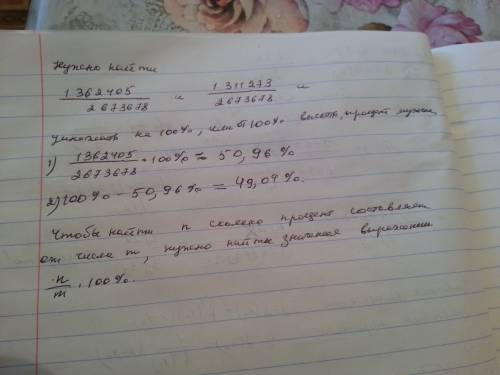 Нужно найти
1 362405 / 2673678 и 1 311273 / 2673678 и
умножить на 100%, или от 100% вычесть процент мужчин
1) 1362405 / 2673678 · 100% ≈ 50,96%
2) 100% – 50,96% = 49,04%.
Чтобы найти n сколько процент составляет
от числа m, нужно найти значения выражении
n / m · 100%.